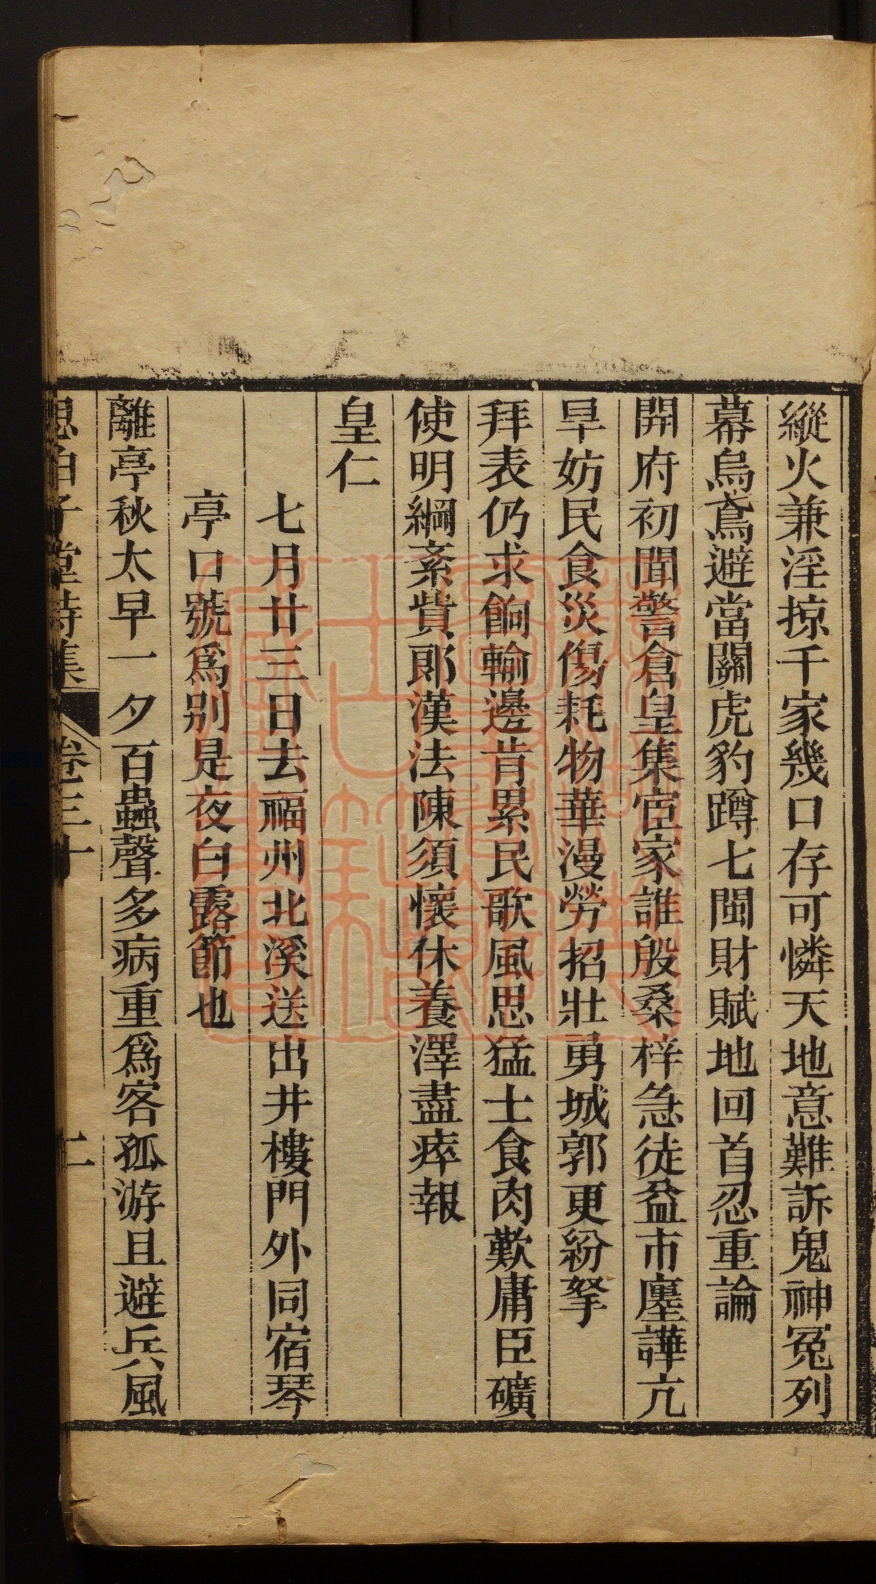 縱火兼淫掠千家幾口存可憐天地意難訴鬼神冤列
幕烏鳶避當關虎豹蹲七閩財賦地回首忍重論
開府初聞警倉皇集宦家誰殷桑梓急徒益市廛譁亢
旱妨民食災傷耗物華漫勞招壯勇城郭更紛拏
拜表仍求餉輸邊肯累民歌風思猛士食肉歎庸臣礦
使明綱紊貲郎漢法陳須懷休養澤盡瘁報
皇仁
七月廿三日去福州北溪送出井樓門外同宿琴
亭口號爲別是夜白露節也
離亭秋太早一夕百蟲聲多病重爲客孤游且避兵風
思伯子堂詩集
卷三十
二